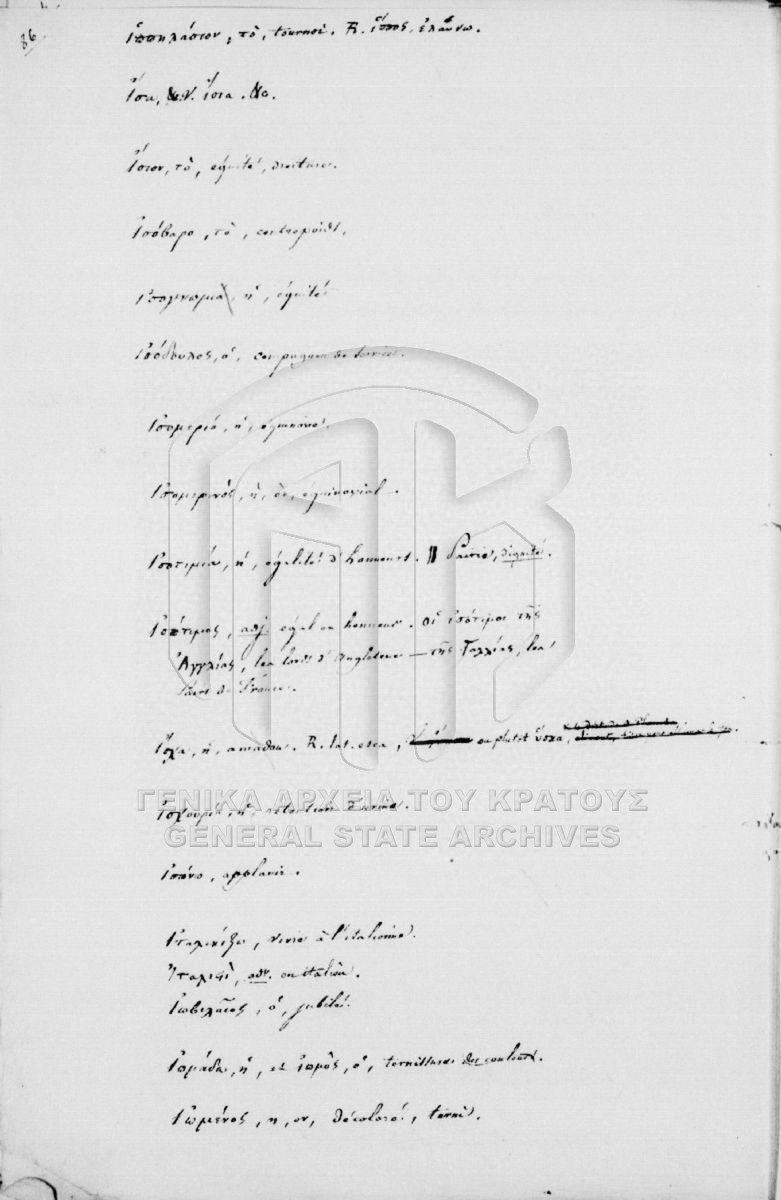 86.
Ἱππηλάσιον, τὸ, tournoi. R. ἵππος, ἐλαύνω.
Ἴσα, V. ἴσια. &c.
Ἴσιον, τὸ, équité, droiture.
Ἰσόβαρο, τὸ, contrepoids.
ἡ, équité
Ἰσόδουλος, ὁ, compagnon de service.
Ἰσημεριά, ἡ, équinoxe.
Ἰσημερινός, ἡ, ὸν, équinoxial.
Ἰσοτιμία, ἡ, égalité d'honneurs. || Pairie, dignité.
Ἰσότιμος, adj. égal en honneur. οἱ ἰσότιμοι τῆς
Ἀγγλίας, les lords d'Angleterre — τῆς Γαλλίας, les
Pairs de France.
Ἴσκα, ἡ, amadou. R. lat. esca, ou plutôt ὕσκα,
Ἰσχουρία, ἡ, rétention d'urine.
Ἰσιόνω, applanir.
Ἰταλικίζω, vivre à l'italienne.
Ἰταλικὶ, adv. en italien.
Ἰωβιλαῖος, ὁ, jubilé.
Ἰωμάδα, ἡ, et ἰωμὸς, ὁ, ternissure des couleurs.
Ἰωμένος, η, ον, décoloré, terni.
ΓΕΝΙΚΑ ΑΡΧΕΙΑ ΤΟΥ ΚΡΑΤΟΥΣ
GENERAL STATE ARCHIVES